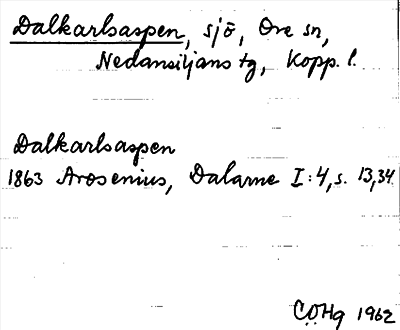 Dalkarlsaspen, sjö, Ore sn,
Nedansiljans tg, Kopp. l.
Dalkarlsaspen
1863 Arosenius, Dalarne I:4, s. 13,34
CÖHg 1962